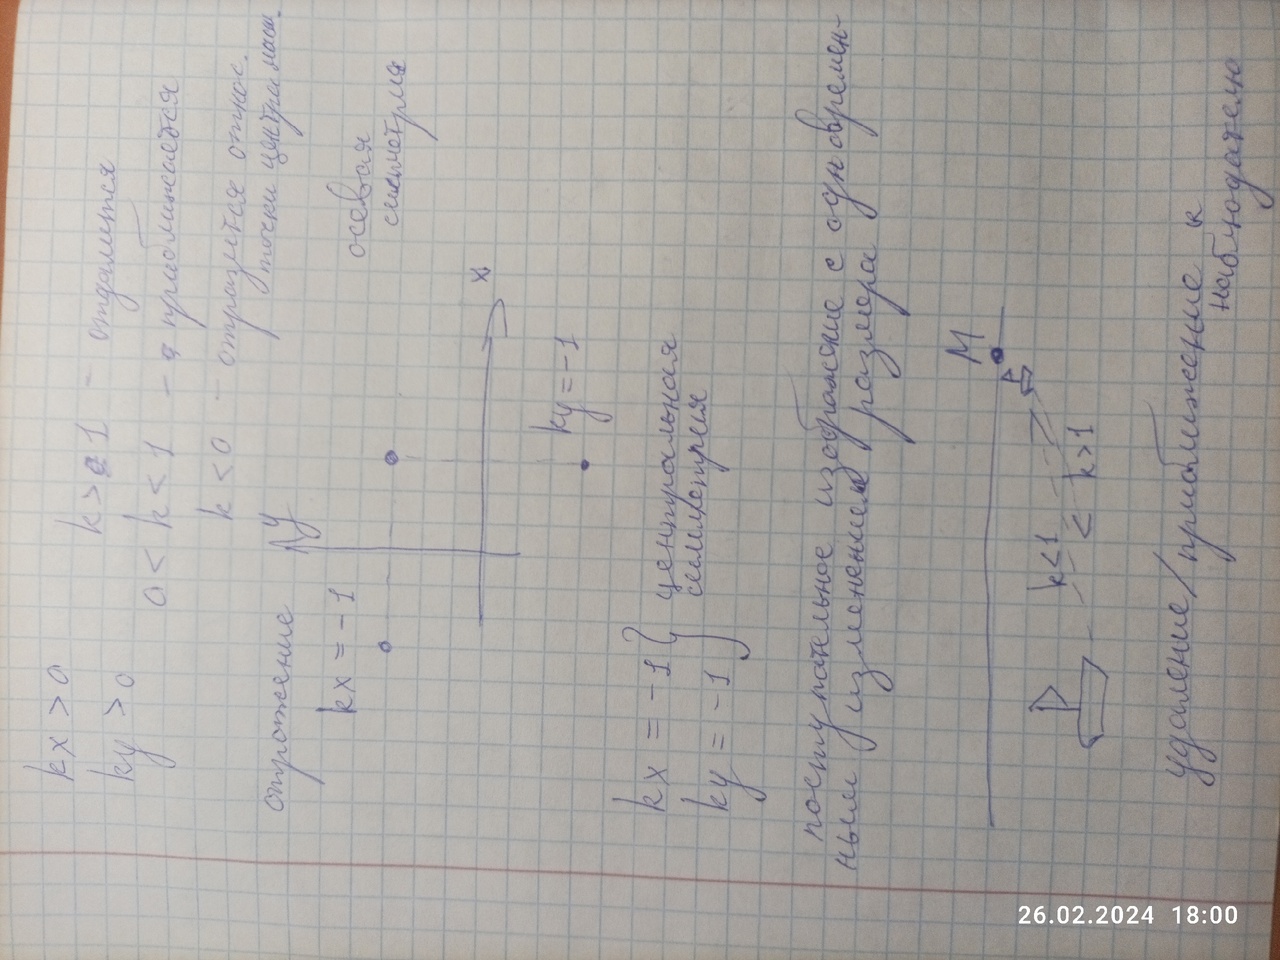 kx > 0
k > 1 - отдалится
ky > 0
0 < k < 1 - приближается
k < 0 - отразится относ.
точки центра масш.
отражение
y
kx = -1
осевая
симметрия
x
ky = -1
kx = -1
ky = -1
центральная
симметрия
поступательное изображение с одновремен-
ным изменением размера
M
k<1
k>1
удаление/приближение к
наблюдателю
26.02.2024 18:00